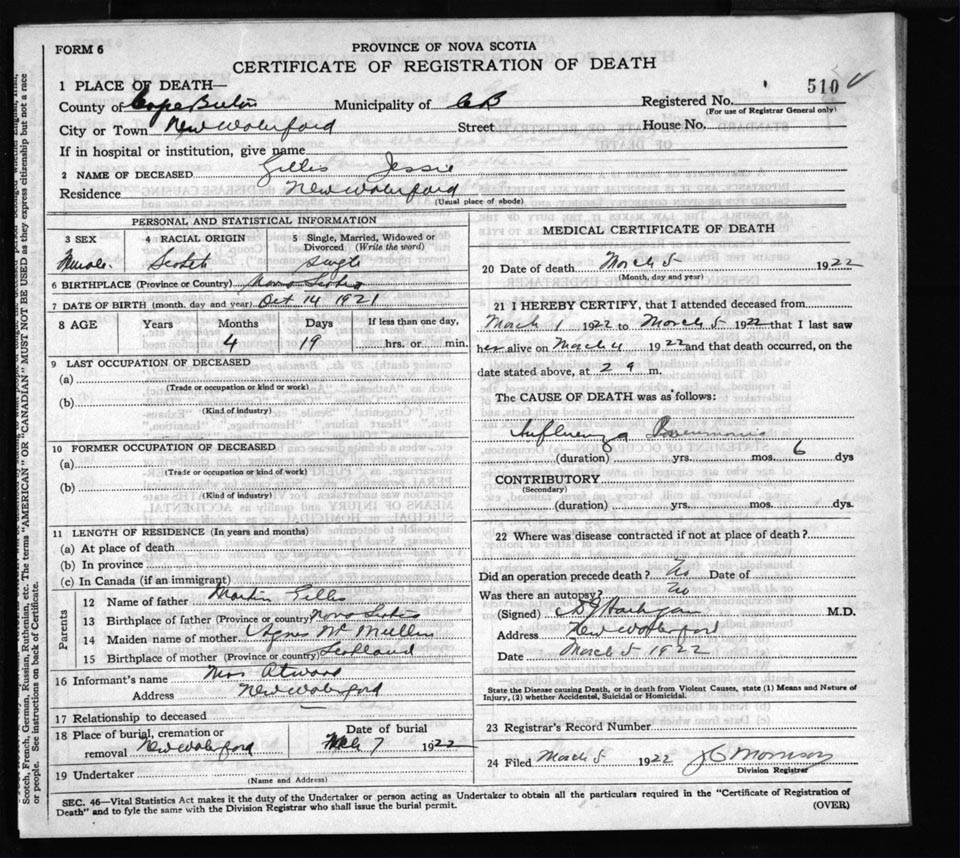 FORM 6
PROVINCE OF NOVA SCOTIA
CERTIFICATE OF REGISTRATION OF DEATH
510
1 PLACE OF DEATH—
County of Cape Breton Municipality of C B Registered No.
(For use of Registrar General only)
City or Town New Waterford Street House No.
If in hospital or institution, give name
2 NAME OF DECEASED Gillis Jessie
Residence New Waterford
(Usual place of abode)
PERSONAL AND STATISTICAL INFORMATION
3 SEX 4 RACIAL ORIGIN 5 Single, Married, Widowed or Divorced (Write the word)
Scotch Single
6 BIRTHPLACE (Province or Country) Nova Scotia
7 DATE OF BIRTH (month, day and year) Oct 14 1921
8 AGE Years Months Days If less than one day,
4 19 hrs. or min.
9 LAST OCCUPATION OF DECEASED
(a)
(Trade or occupation or kind or work)
(b)
(Kind of industry)
10 FORMER OCCUPATION OF DECEASED
(a)
(Trade or occupation or kind of work)
(b)
(Kind of industry)
11 LENGTH OF RESIDENCE (In years and months)
(a) At place of death
(b) In province
(c) In Canada (if an immigrant)
Parents
12 Name of father Martin Gillis
13 Birthplace of father (Province or country) Nova Scotia
14 Maiden name of mother Agnes Mc Mullin
15 Birthplace of mother (Province or country) Scotland
16 Informant's name Mrs Atwood
Address New Waterford
17 Relationship to deceased
18 Place of burial, cremation or removal New Waterford
Date of burial
Mch 7 1922
19 Undertaker
(Name and Address)
MEDICAL CERTIFICATE OF DEATH
20 Date of death March 5 1922
(Month, day and year)
21 I HEREBY CERTIFY, that I attended deceased from
March 1 1922 to March 5 1922 that I last saw
her alive on March 4 1922 and that death occurred, on the
date stated above, at 2 a m.
The CAUSE OF DEATH was as follows:
Influenza Pneumonia
(duration) yrs. mos. 6 dys
CONTRIBUTORY
(Secondary)
(duration) yrs. mos. dys.
22 Where was disease contracted if not at place of death?
Did an operation precede death? No Date of
Was there an autopsy? No
(Signed) M.D.
Address New Waterford
Date March 5 1922
State the Disease causing Death, or in death from Violent Causes, state (1) Means and Nature of
Injury, (2) whether Accidental, Suicidal or Homicidal.
23 Registrar's Record Number
24 Filed March 5 1922 J C Morrison
Division Registrar
SEC. 46—Vital Statistics Act makes it the duty of the Undertaker or person acting as Undertaker to obtain all the particulars required in the "Certificate of Registration of
Death" and to fyle the same with the Division Registrar who shall issue the burial permit. (OVER)
Scotch, French, German, Russian, Ruthenian, etc. The terms "AMERICAN" OR "CANADIAN" MUST NOT BE USED as they express citizenship but not a race
or people. See instructions on back of Certificate.